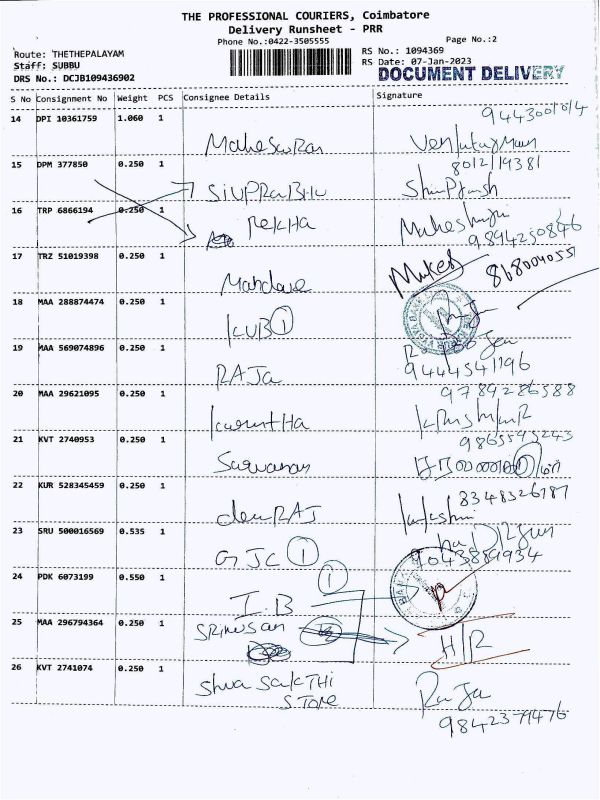 THE PROFESSIONAL COURIERS, Coimbatore
Delivery Runsheet - PRR
Phone No.:0422-3505555
Page No.:2
Route: THETHEPALAYAM
RS No.: 1094369
Staff: SUBBU
RS Date: 07-Jan-2023
DRS No.: DCJB109436902
DOCUMENT DELIVERY
S No Consignment No Weight PCS Consignee Details Signature
14 DPI 10361759 1.060 1
Maheswran
15 DPM 377850 0.250 1
8012119381
SIVPRABHU
16 TRP 6866194 0.250 1
REKHA
9894250846
17 TRZ 51019398 0.250 1
Mukesh
8680040551
18 MAA 288874474 0.250 1
KVB 1
19 MAA 569074896 0.250 1
RAJA
9444541196
20 MAA 29621095 0.250 1
9789286588
21 KVT 2740953 0.250 1
9865595243
Sarvanan
22 KUR 528345459 0.250 1
8348326787
devRAJ
23 SRU 500016569 0.535 1
GJC 1
9043889934
24 PDK 6073199 0.550 1
1
I.B
25 MAA 296794364 0.250 1
SRINUSAN
H/R
26 KVT 2741074 0.250 1
Shva SakTHI
STORE
RaJa
9842379476